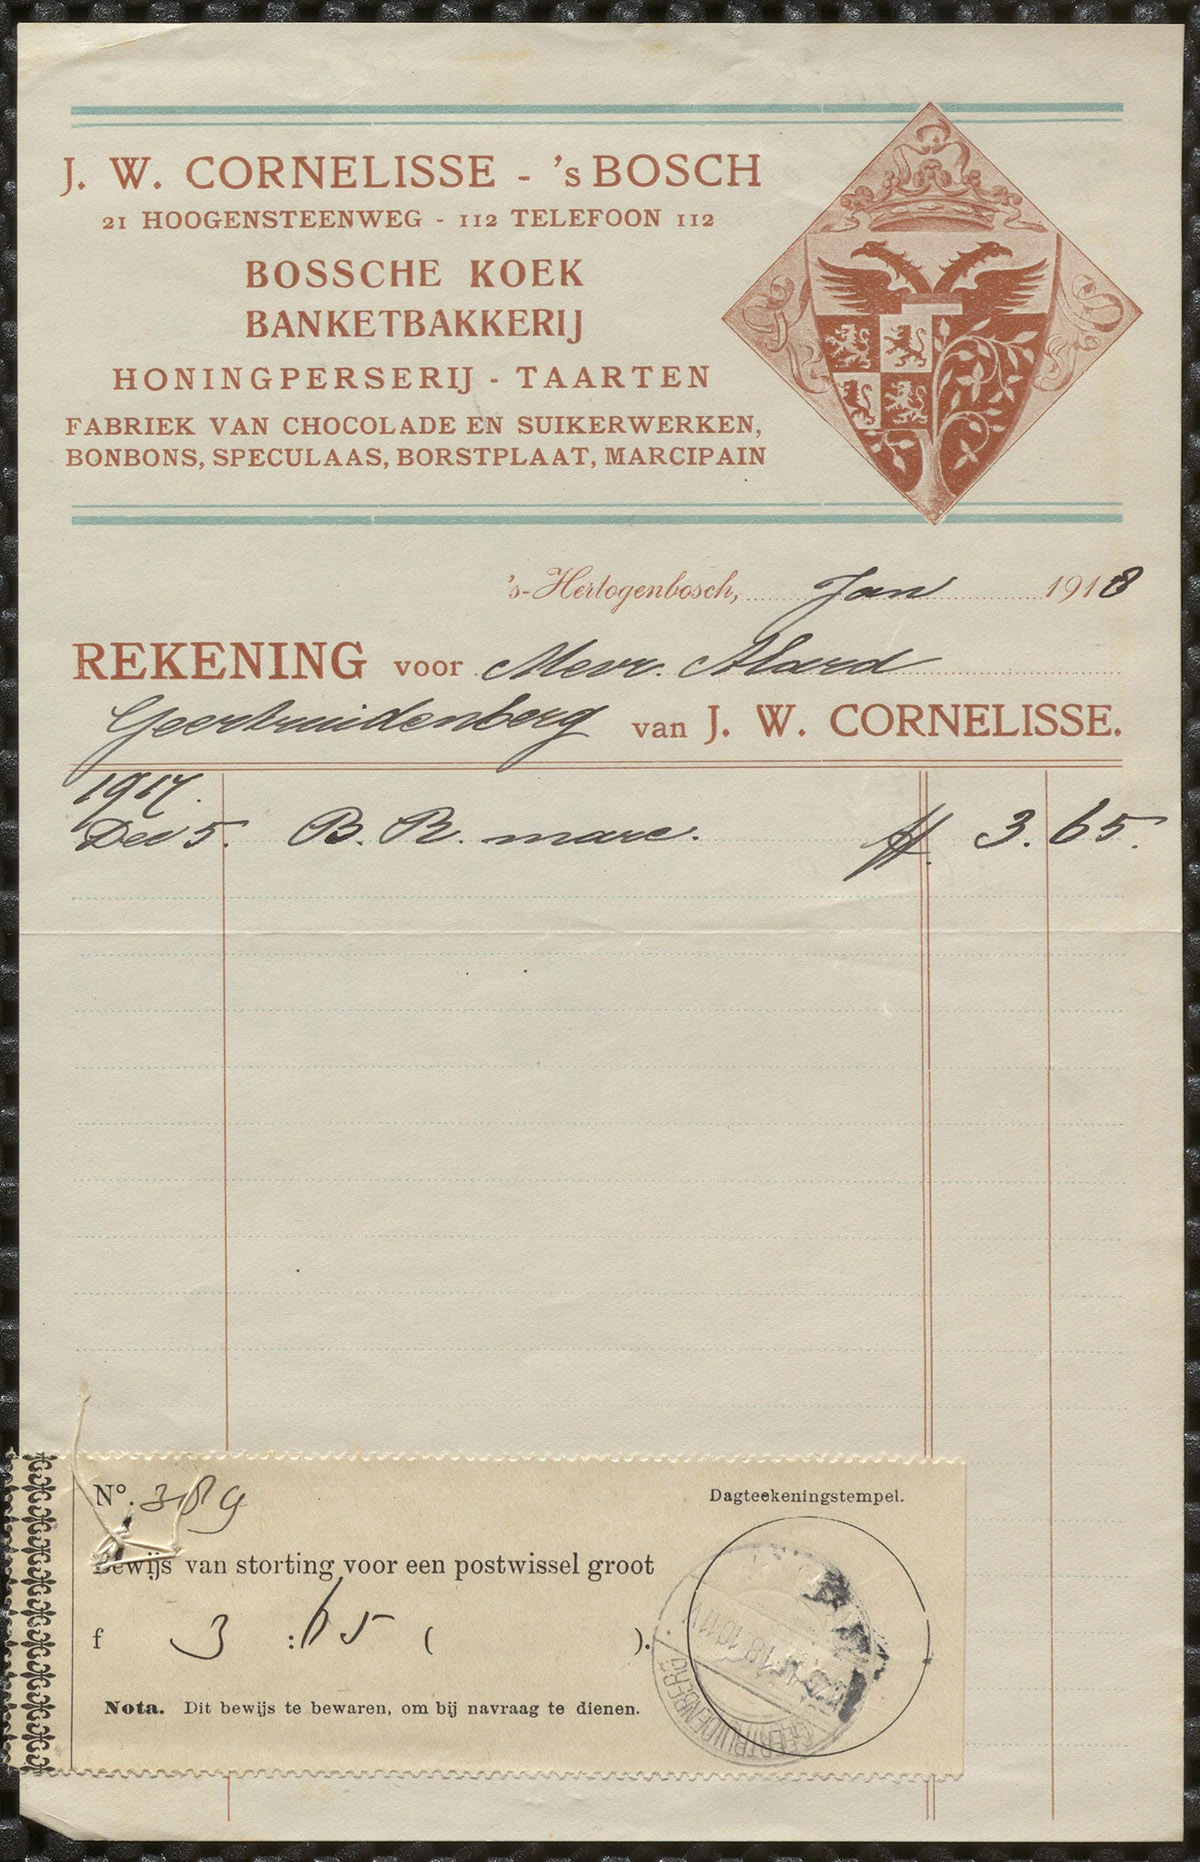 J. W. CORNELISSE - 's BOSCH
21 HOOGENSTEENWEG - 112 TELEFOON 112
BOSSCHE KOEK
BANKETBAKKERIJ
HONINGPERSERIJ - TAARTEN
FABRIEK VAN CHOCOLADE EN SUIKERWERKEN,
BONBONS, SPECULAAS, BORSTPLAAT, MARCIPAIN
's-Hertogenbosch, Jan 1918
REKENING voor Mevr. Alard
Geertruidenberg van J. W. CORNELISSE.
1917.
Dec 5. B. R. marc. ff. 3. 65.
No. 389
Dagteekeningstempel.
Bewijs van storting voor een postwissel groot
f 3 : 65 ( ).
Nota. Dit bewijs te bewaren, om bij navraag te dienen.
GEERTRUIDENBERG